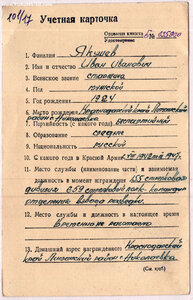 101/17
Учетная карточка
Орденская книжка
Удостоверение
1. Фамилия Якушев
2. Имя и отчество Иван Иванович
3. Воинское звание старшина
4. Пол мужской
5. Год рождения 1924
6. Место рождения Краснодарский край
район с. Николаевка
7. Партийность (с какого года) беспартийный
8. Образование среднее
9. Национальность русский
10. С какого года в Красной Армии 1942 1947
11. Место службы (наименование части) и занимаемая
должность в момент награждения 155 стрелковая
дивизия 659 стрелковый полк командир
отделения взвода разведки
12. Место службы и должность в настоящее время
Временно не работаю
13. Домашний адрес награжденного Краснодарский
край район с. Николаевка
(См. н/об)